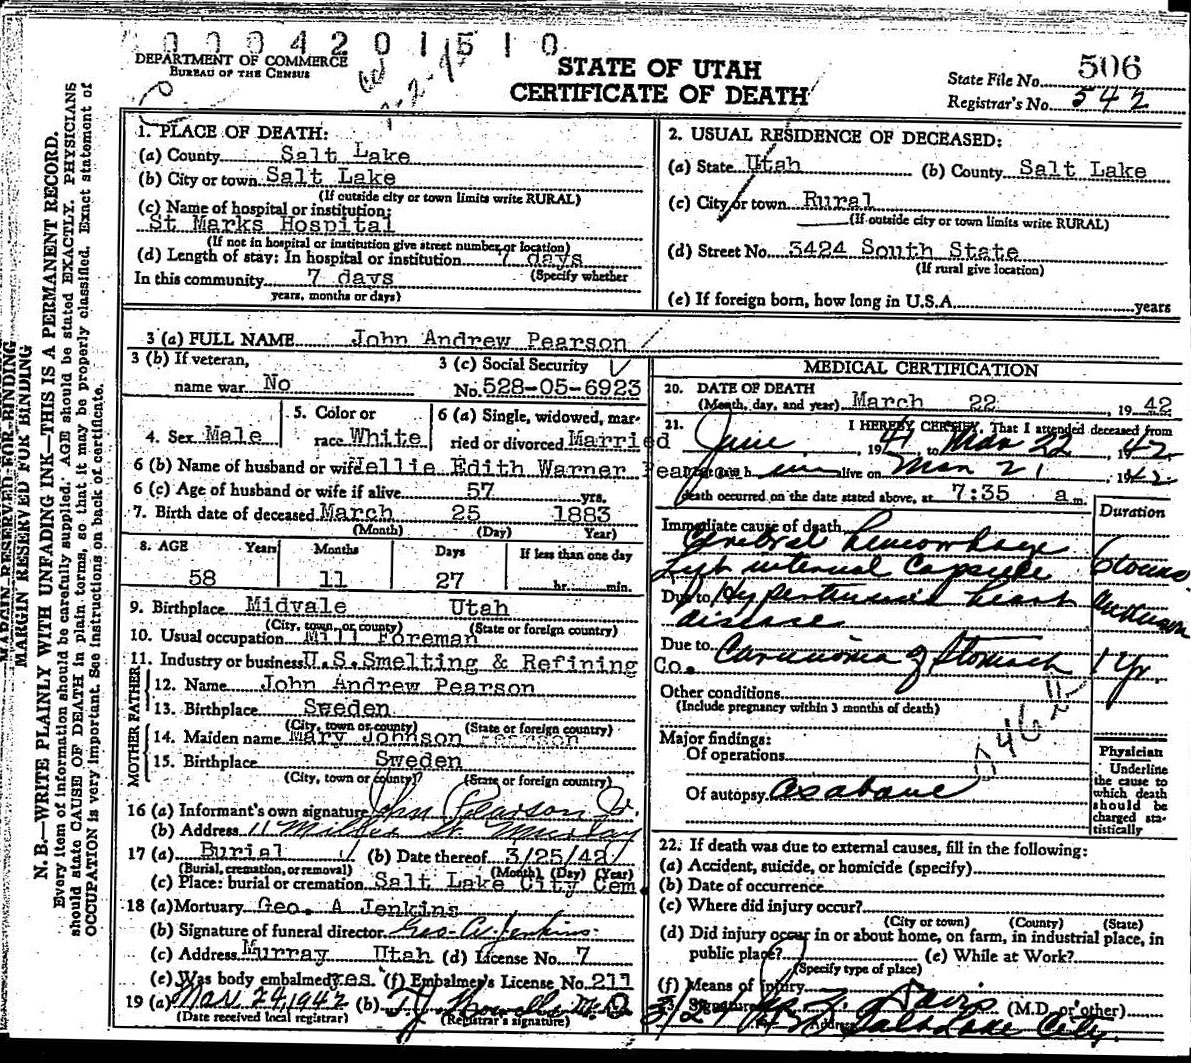 0 0 0 4 2 0 1 5 1 0
DEPARTMENT OF COMMERCE
BUREAU OF THE CENSUS
STATE OF UTAH
CERTIFICATE OF DEATH
State File No. 506
Registrar's No. 542
MARGIN RESERVED FOR BINDING
N. B.—WRITE PLAINLY WITH UNFADING INK—THIS IS A PERMANENT RECORD.
Every item of information should be carefully supplied. AGE should be stated EXACTLY. PHYSICIANS
should state CAUSE OF DEATH in plain terms, so that it may be properly classified. Exact statement of
OCCUPATION is very important. See instructions on back of certificate.
1. PLACE OF DEATH:
(a) County Salt Lake
(b) City or town Salt Lake
(If outside city or town limits write RURAL)
(c) Name of hospital or institution:
St Marks Hospital
(If not in hospital or institution give street number or location)
(d) Length of stay: In hospital or institution 7 days
(Specify whether
In this community 7 days
years, months or days)
2. USUAL RESIDENCE OF DECEASED:
(a) State Utah (b) County Salt Lake
(c) City or town Rural
(If outside city or town limits write RURAL)
(d) Street No. 3424 South State
(If rural give location)
(e) If foreign born, how long in U.S.A. years
3 (a) FULL NAME John Andrew Pearson
3 (b) If veteran,
name war No
3 (c) Social Security
No. 528-05-6923
4. Sex Male
5. Color or
race White
6 (a) Single, widowed, mar-
ried or divorced Married
6 (b) Name of husband or wife Nellie Edith Warner Pearson
6 (c) Age of husband or wife if alive 57 yrs.
7. Birth date of deceased March 25 1883
(Month) (Day) Year)
8. AGE Years Months Days If less than one day
58 11 27 hr. min.
9. Birthplace Midvale Utah
(City, town, or county) (State or foreign country)
10. Usual occupation Mill Foreman
11. Industry or business U.S. Smelting & Refining Co.
FATHER
12. Name John Andrew Pearson
13. Birthplace Sweden
(City, town or county) (State or foreign country)
MOTHER
14. Maiden name Mary Johnson Pearson
15. Birthplace Sweden
(City, town or county) (State or foreign country)
16 (a) Informant's own signature John Pearson Jr.
(b) Address 11 Miller St. Murray
17 (a) Burial (b) Date thereof 3/25/42
(Burial, cremation, or removal) (Month) (Day) (Year)
(c) Place: burial or cremation Salt Lake City Cem.
18 (a) Mortuary Geo. A Jenkins
(b) Signature of funeral director Geo. A. Jenkins
(c) Address Murray Utah (d) License No. 7
(e) Was body embalmed yes. (f) Embalmer's License No. 211
19 (a) Mar. 24, 1942 (b) M.D.
(Date received local registrar) (Registrar's signature)
MEDICAL CERTIFICATION
20. DATE OF DEATH
(Month, day, and year) March 22, 1942
21. I HEREBY CERTIFY, That I attended deceased from
June, 1941 to Mar 22, 1942
alive on Mar 21, 1942
death occurred on the date stated above, at 7:35 a m.
Duration
Immediate cause of death
Cerebral hemorrhage
Left internal Capsule 6 hours
Due to Hypertensive heart unknown
disease
Due to Carcinoma of Stomach 1 yr.
Other conditions
(Include pregnancy within 3 months of death)
Major findings:
Of operations
Of autopsy As above
Physician
Underline
the cause to
which death
should be
charged sta-
tistically
22. If death was due to external causes, fill in the following:
(a) Accident, suicide, or homicide (specify)
(b) Date of occurrence
(c) Where did injury occur?
(City or town) (County) (State)
(d) Did injury occur in or about home, on farm, in industrial place, in
public place? (e) While at Work?
(Specify type of place)
(f) Means of injury
Signature Davis (M.D. or other)
3/24 Address Salt Lake City.